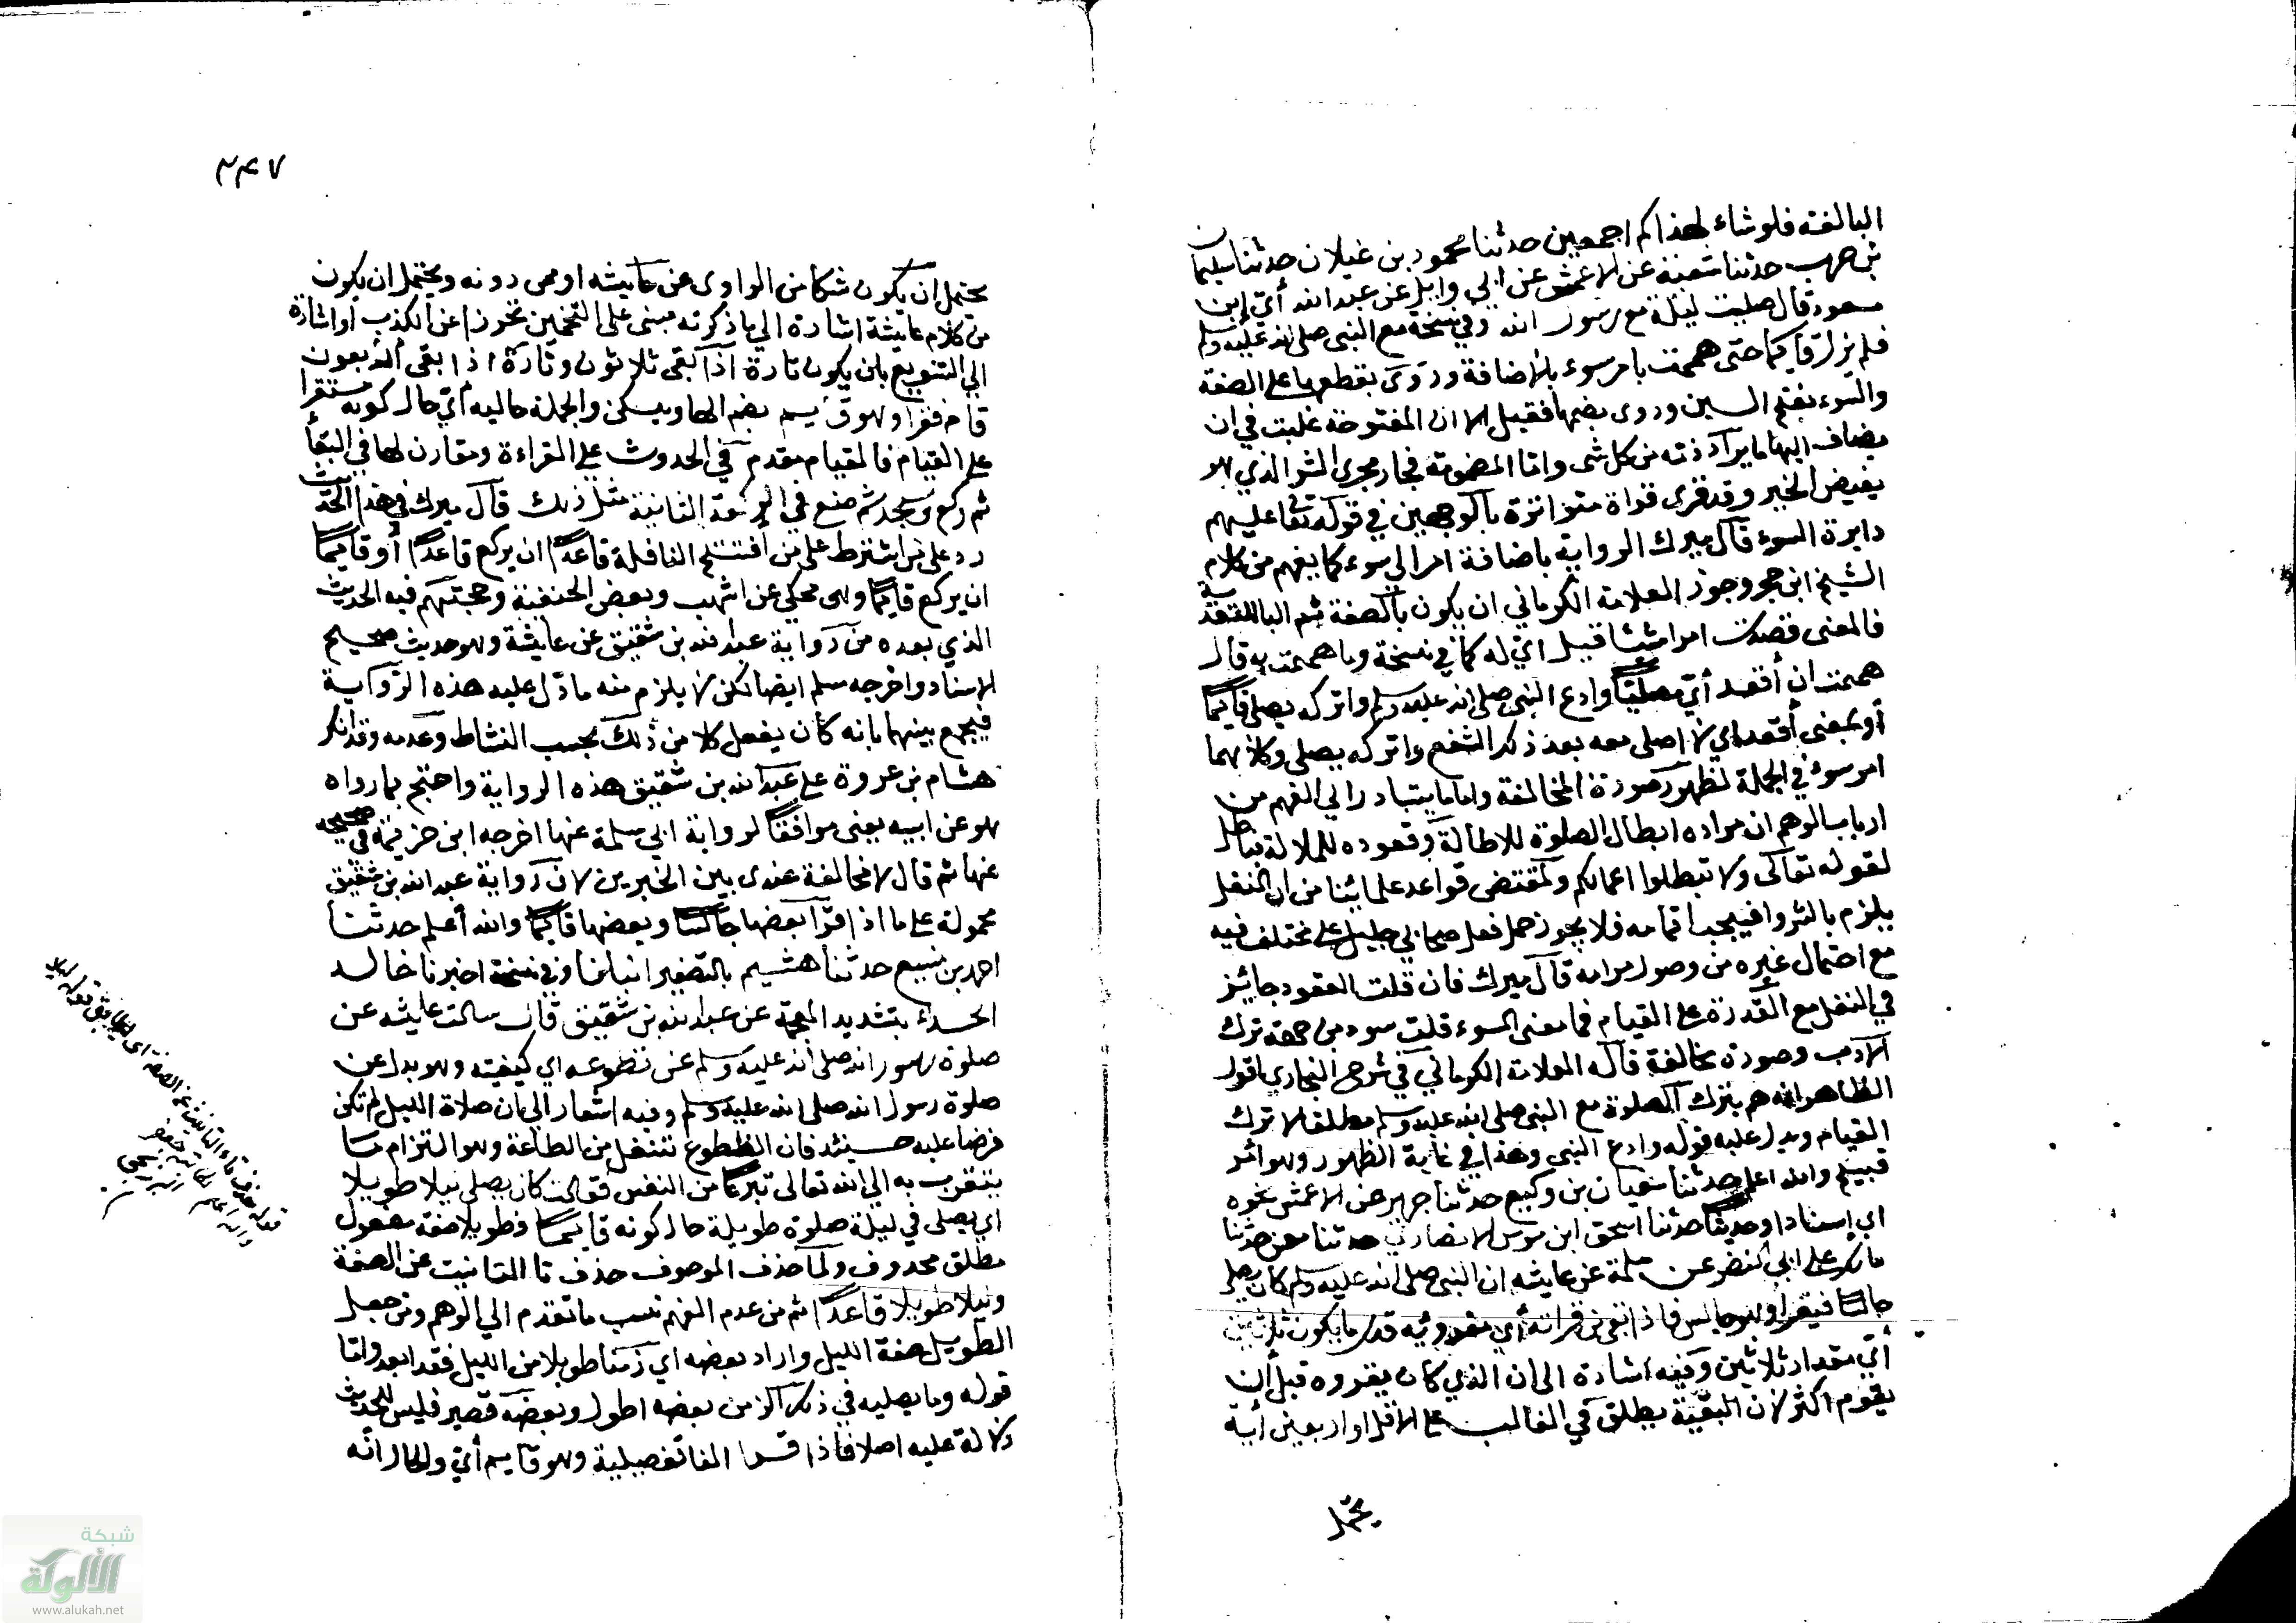 البالغة فلو شاء لهذاكم اجمعين حدثنا محمود بن غيلان حدثنا سليمان
بن حرب حدثنا شعبة عن الاعمش عن ابي وايل عن عبد الله أي ابن
مسعود قال صليت ليلة مع رسول الله وفي نسخة مع النبي صلى الله عليه وسلم
فلم يزل قايما حتى هممت بامر سوء بالاضافة وروى بقطعها على الصفة
والسوء بفتح السين وروى بضمها فقيل الا ان المفتوحة غلبت في ان
يضاف اليها ما يراد ذمه من كل شى واما المضمومة فجار مجرى الشر الذي هو
نقيض الخير وقد قرى قراة متواترة بالوجهين في قوله تعا عليهم
دايرة السوء قال ميرك الرواية باضافة امر الى سوء كما يفهم من كلام
الشيخ ابن حجر وجوز العلامة الكرماني ان يكون بالصفة ثم البا للتعدية
فالمعنى قصدت امرا سيئا قيل اي له كما في نسخة وما هممت به قال
هممت ان أقعد أي مصليا وادع النبي صلى الله عليه وسلم واتركه يصلي قايما
أو بمعنى أقعد اي لا اصلى معه بعد ذلك الشفع واتركه يصلى وكلاهما
امر سوء في الجملة لظهور صورة المخالفة واما ما يتبادر الي الفهم من
ارباب الوهم ان مراده ابطال الصلوة للاطالة وقعوده للملالة فباطل
لقوله تعالى ولا تبطلوا اعمالكم ولمقتضى قواعد علمائنا من ان النفل
يلزم بالشروع فيجب اتمامه فلا يجوز حمل فعل صحابي جليل على مختلف فيه
مع احتمال غيره من وصول مرامه قال ميرك فان قلت القعود جايز
في النفل مع القدرة على القيام فما معنى السوء قلت سوءه من جهة ترك
الادب وصورة مخالفة قاله العلامة الكرماني في شرح البخاري اقول
الظاهر انه هم بترك الصلوة مع النبي صلى الله عليه وسلم مطلقا لا ترك
القيام ويدل عليه قوله وادع النبي وهذا في غاية الظهور وهو امر
قبيح والله اعلم حدثنا سفيان بن وكيع حدثنا جرير عن الاعمش نحوه
اي اسنادا وحديثا حدثنا اسحق ابن موسى الانصاري حدثنا معن حدثنا
مالك عن ابي النضر عن سلمة عن عايشه ان النبي صلى الله عليه وسلم كان يصلي
جالسا فيقرا وهو جالس فاذا بقي من قراته أي مقروئه قدر ما يكون ثلاثين
أي مقدار ثلاثين وفيه اشارة الى ان الذي كان يقروه قبل أن
يقوم اكثر لان البقية يطلق في الغالب على الاقل او اربعين أية
يحتمل
٢٤٧
يحتمل ان يكون شكا من الراوى عن عايشه او ممن دونه ويحتمل ان يكون
من كلام عايشة اشارة الي ما ذكرته مبنى على التخمين تحرزا عن الكذب او اشارة
الي التنويع بان يكون تارة اذا بقى ثلاثون وتارة اذا بقى أربعون
قام فقرا وهو قايم بضم الها ويسكن والجملة حاليه أي حال كونه مستقرا
على القيام فالقيام مقدم في الحدوث على القراءة ومقارن لها في البقأ
ثم ركع وسجد ثم صنع في الركعة الثانية مثل ذلك قال ميرك في هذا الحديث
رد على من اشترط على من افتتح النافلة قاعدا ان يركع قاعدا أو قايما
ان يركع قايما وهو محكي عن اشهب وبعض الحنفية وحجتهم فيه الحديث
الذي بعده من رواية عبد الله بن شقيق عن عايشة وهو حديث صحيح
الاسناد واخرجه مسلم ايضا لكن لا يلزم منه ما دل عليه هذه الرواية
فيجمع بينهما بانه كان يفعل كلا من ذلك بحسب النشاط وعدمه وقد انكر
هشام بن عروة على عبد الله بن شقيق هذه الرواية واحتج بما رواه
هو عن ابيه يعنى موافقا لرواية ابي سلمة عنها اخرجه ابن خزيمة في صحيحه
عنها ثم قال لا مخالفة عندى بين الخبرين لان رواية عبد الله بن شقيق
محمولة على ما اذا قرأ بعضها جالسا وبعضها قايما والله أعلم حدثنا
احمد بن منيع حدثنا هشيم بالتصغير انبانا وفي نسخة اخبرنا خالد
الحذاء بتشديد المعجمة عن عبد الله بن شقيق قال سالت عايشه عن
صلوة رسول الله صلى الله عليه وسلم عن تطوعه اي كيفيته وهو بدل عن
صلوة رسول الله صلى الله عليه وسلم وفيه اشعار الي ان صلاة الليل لم تكن
فرضا عليه حينئذ فان التطوع تنفل من الطاعة وهو التزام ما
يتقرب به الي الله تعالى تبرعا من النفس فقالت كان يصلي ليلا طويلا
اي يصلي في ليلة صلوة طويلة حال كونه قايما فطويلا صفة مفعول
مطلق محدوف ولما حذف الموصوف حذف تا التانيث عن الصفة
وليلا طويلا قاعدا ثم من عدم الفهم نسب ما تقدم الي الوهم ومن جعل
الطويل صفة الليل واراد بعضه اي زمنا طويلا من الليل فقد ابعد واما
قوله وما يصليه في ذلك الزمن بعضه اطول وبعضه قصير فليس للحديث
دلالة عليه اصلا فاذا قرا الفا تفصيلية وهو قايم أي والحال انه
شبكة
الألوكة
www.alukah.net